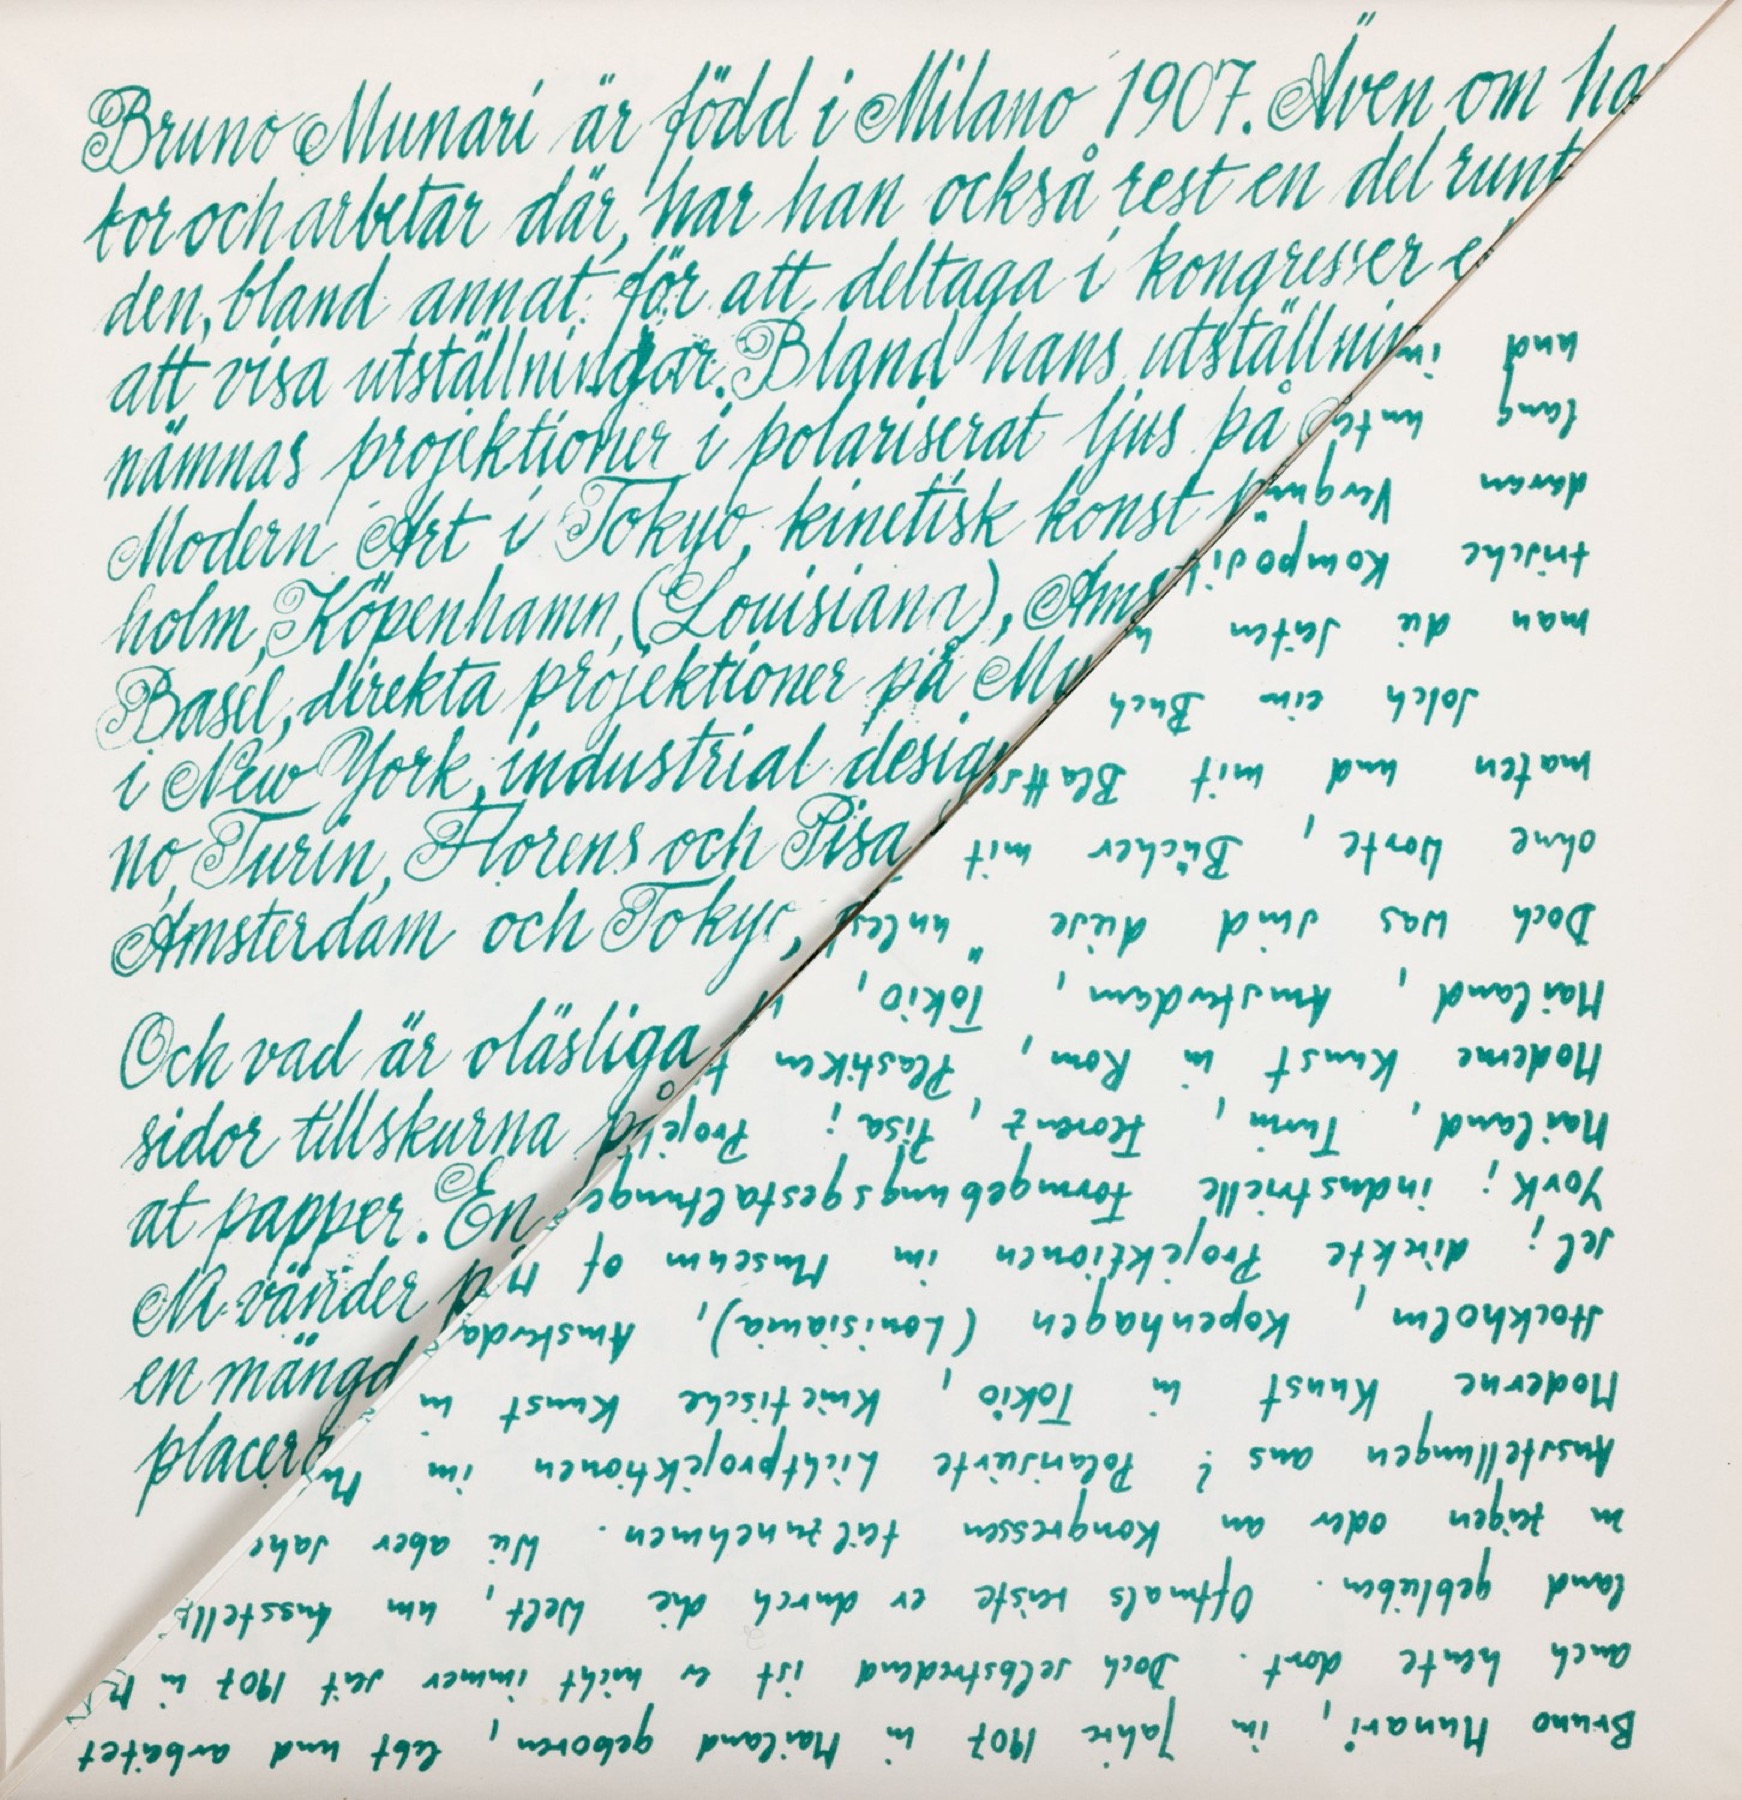 Bruno Munari är född i Milano 1907. Även om ha
tor och arbetar där, har han också rest en del runt
den, bland annat för att deltaga i kongresser
att visa utställningar. Bland hans utställnin
nämnas projektioner i polariserat ljus på
Modern Art i Tokyo, kinetisk konst
holm, Köpenhamn, (Louisiana), Ams
Basel, direkta projektioner på Mu
i New York, industrial desig
no, Turin, Florens och Pisa
Amsterdam och Tokyo,
Och vad är oläsliga
sidor tillskurna på
at papper. En
Ni vänder
en mängd
placera
Bruno Munari, im Jahre 1907 in Mailand geboren, lebt und arbeitet
auch heute dort. Doch selbstredend ist er nicht immer seit 1907 in
land geblieben. Oftmals reiste er durch die Welt, um Ausstell
zu zeigen oder an Kongressen teilzunehmen. Wie aber sahe
Ausstellungen aus? Polarisierte Lichtprojektionen im Mu
Moderne Kunst in Tokio, Kinetische Kunst in
Stockholm, Kopenhagen (Louisiania), Amsterda
sel; direkte Projektionen im Museum of M
York; industrielle Formgebungsgestaltunge
Mailand, Turin, Florenz, Pisa; Projek
Moderne Kunst in Rom, Plastiken
Mailand, Amsterdam, Tokio,
Doch was sind diese "unles
ohne Worte, Bücher mit
maten und mit Blattse
solch ein Buch
man die Seiten
trische Komposit
daran Vergnü
lang unter
und in